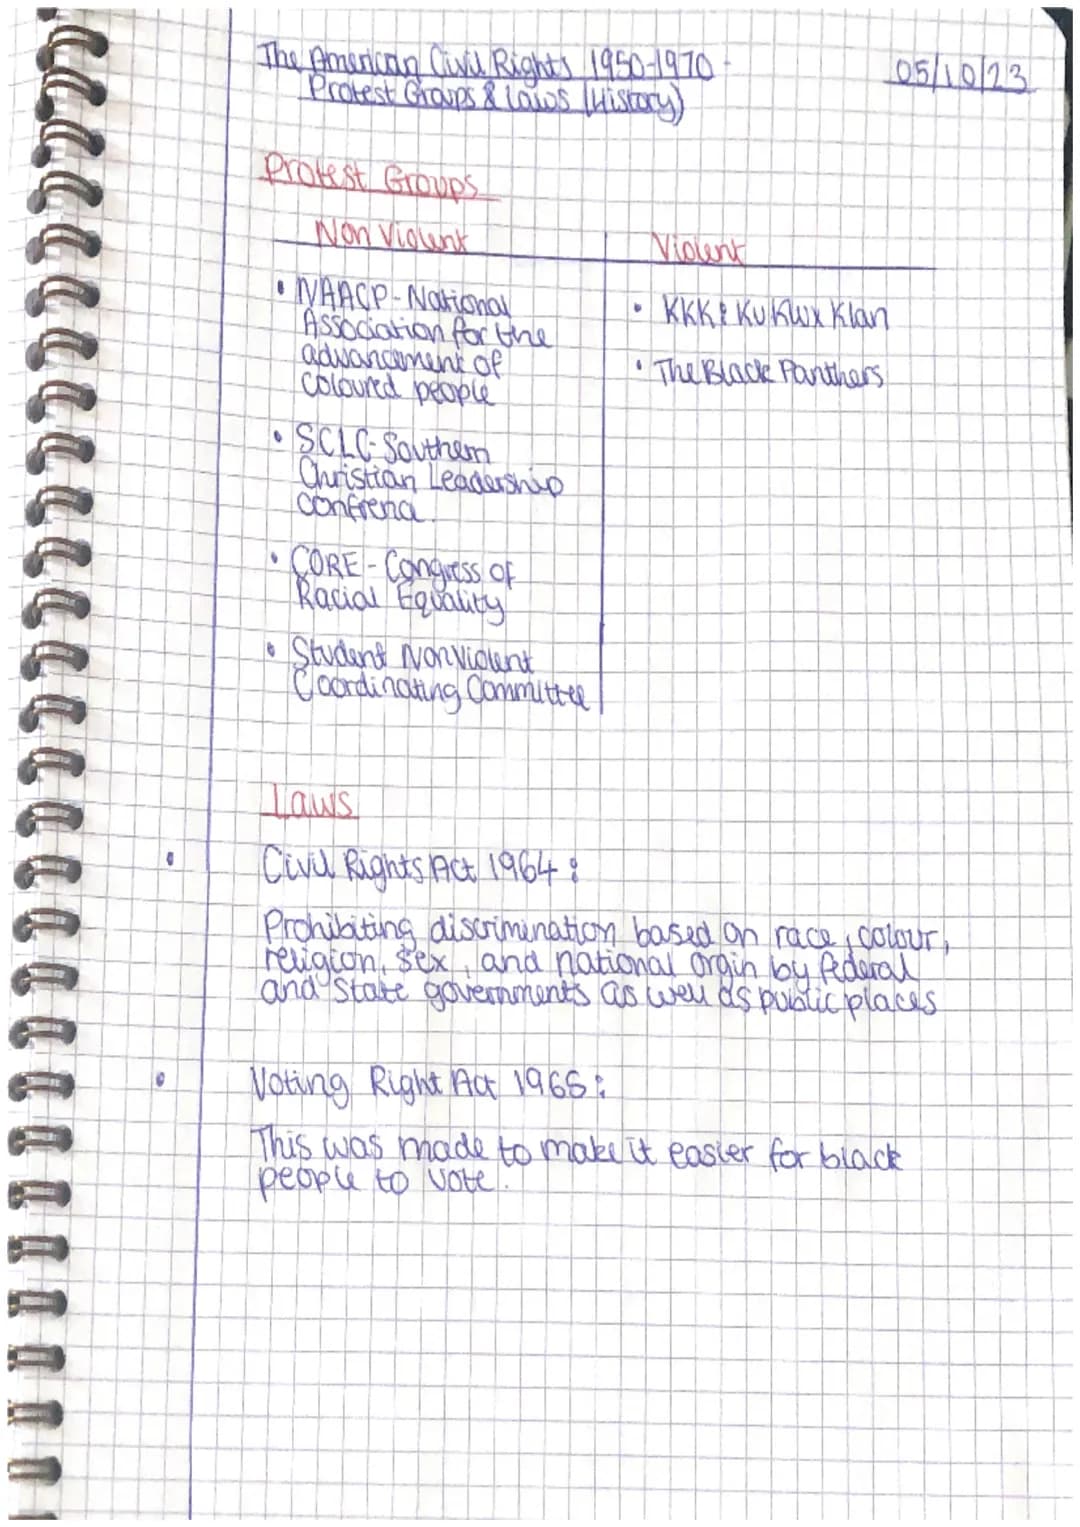 The American Civil Rights 1950-1970 -
05/10/23
Protest Groups & Laws (History)
Protest Groups
Non Violent
Violent
• NAACP - National
Association for the
advancement of
coloured people
• SCLC - Southern
Christian Leadership
Confrence.
• CORE - Congress of
Racial Equality
• Student NonViolent
Coordinating Committee
• KKK: Ku Klux Klan
• The Black Panthers
Laws
• Civil Rights Act 1964:
Prohibiting discrimination based on race, colour,
religion, sex, and national orgin by federal
and state governments as well as public places
• Voting Right Act 1965:
This was made to make it easier for black
people to vote.